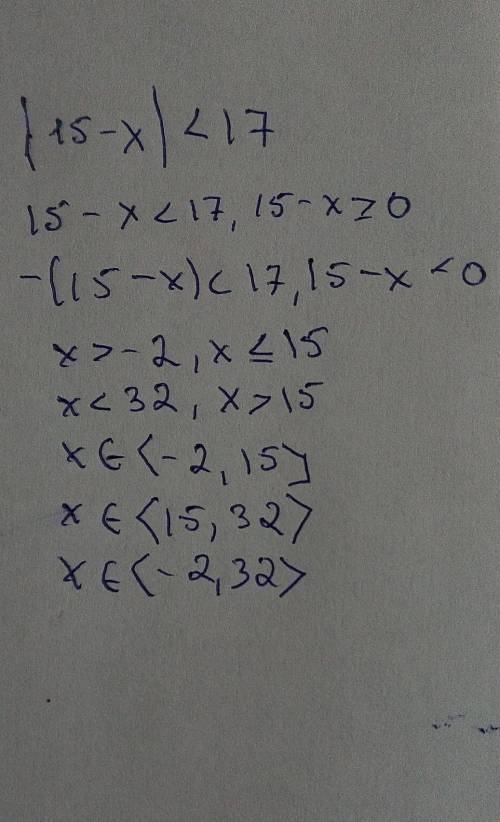 |15-x| < 17
15-x<17, 15-x≥0
-(15-x)<17, 15-x<0
x>-2, x≤15
x<32, x>15
x∈⟨-2,15]
x∈⟨15,32⟩
x∈⟨-2,32⟩